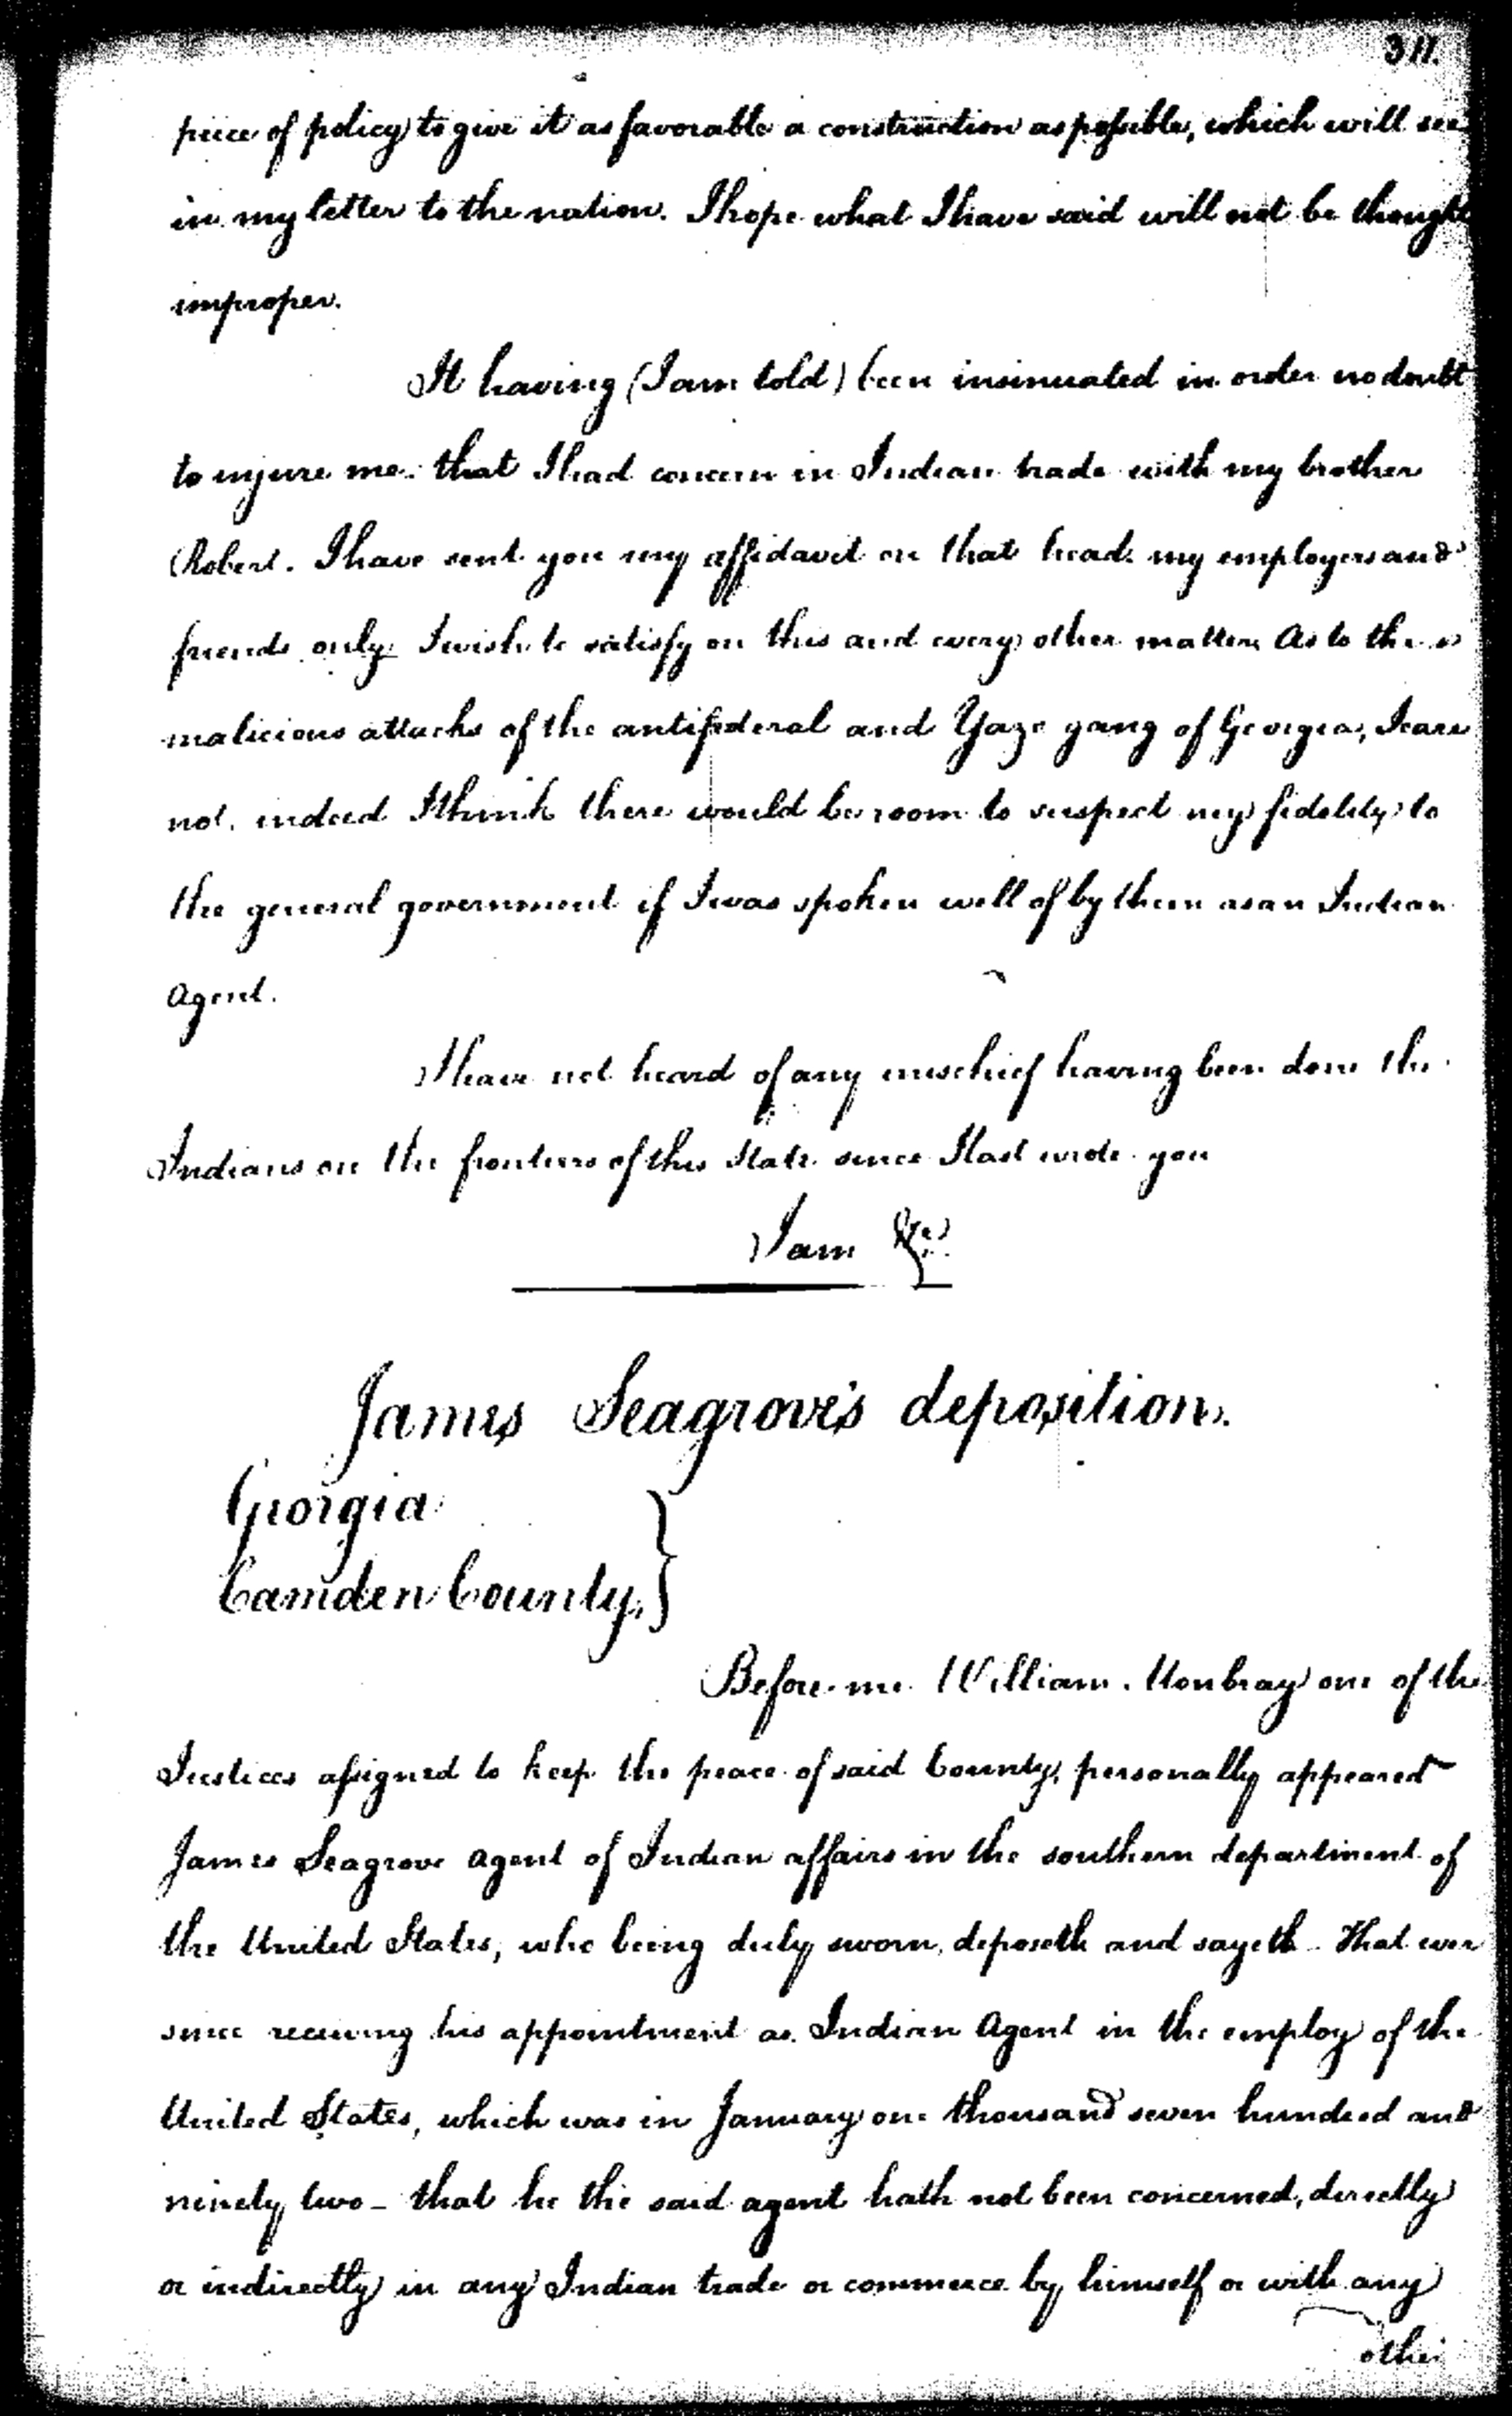 311.
piece of policy to give it as favorable a construction as possible, which will see
in my letter to the nation. I hope what I have said will not be thought
improper.
It having (I am told) been insinuated in order no doubt
to injure me. that I had concern in Indian trade with my brother
Robert. I have sent you my affidavit on that head. my employers and
friends only I wish to satisfy on this and every other matter. As to the
malicious attacks of the antifederal and Yazo gang of Georgia, I care
not. indeed I think there would be room to suspect my fidelity to
the general government if I was spoken well of by them as an Indian
Agent.
I have not heard of any mischief having been done the
Indians on the frontiers of this State since I last wrote you
I am &c.
James Seagrove's deposition.
Georgia
Camden County, }
Before me William Monbray one of the
Justices assigned to keep the peace of said County, personally appeared
James Seagrove Agent of Indian affairs in the southern department of
the United States, who being duly sworn, deposeth and sayeth - That ever
since receiving his appointment as Indian Agent in the employ of the
United States, which was in January one thousand seven hundred and
ninety two - that he the said agent hath not been concerned, directly
or indirectly in any Indian trade or commerce by himself or with any
other